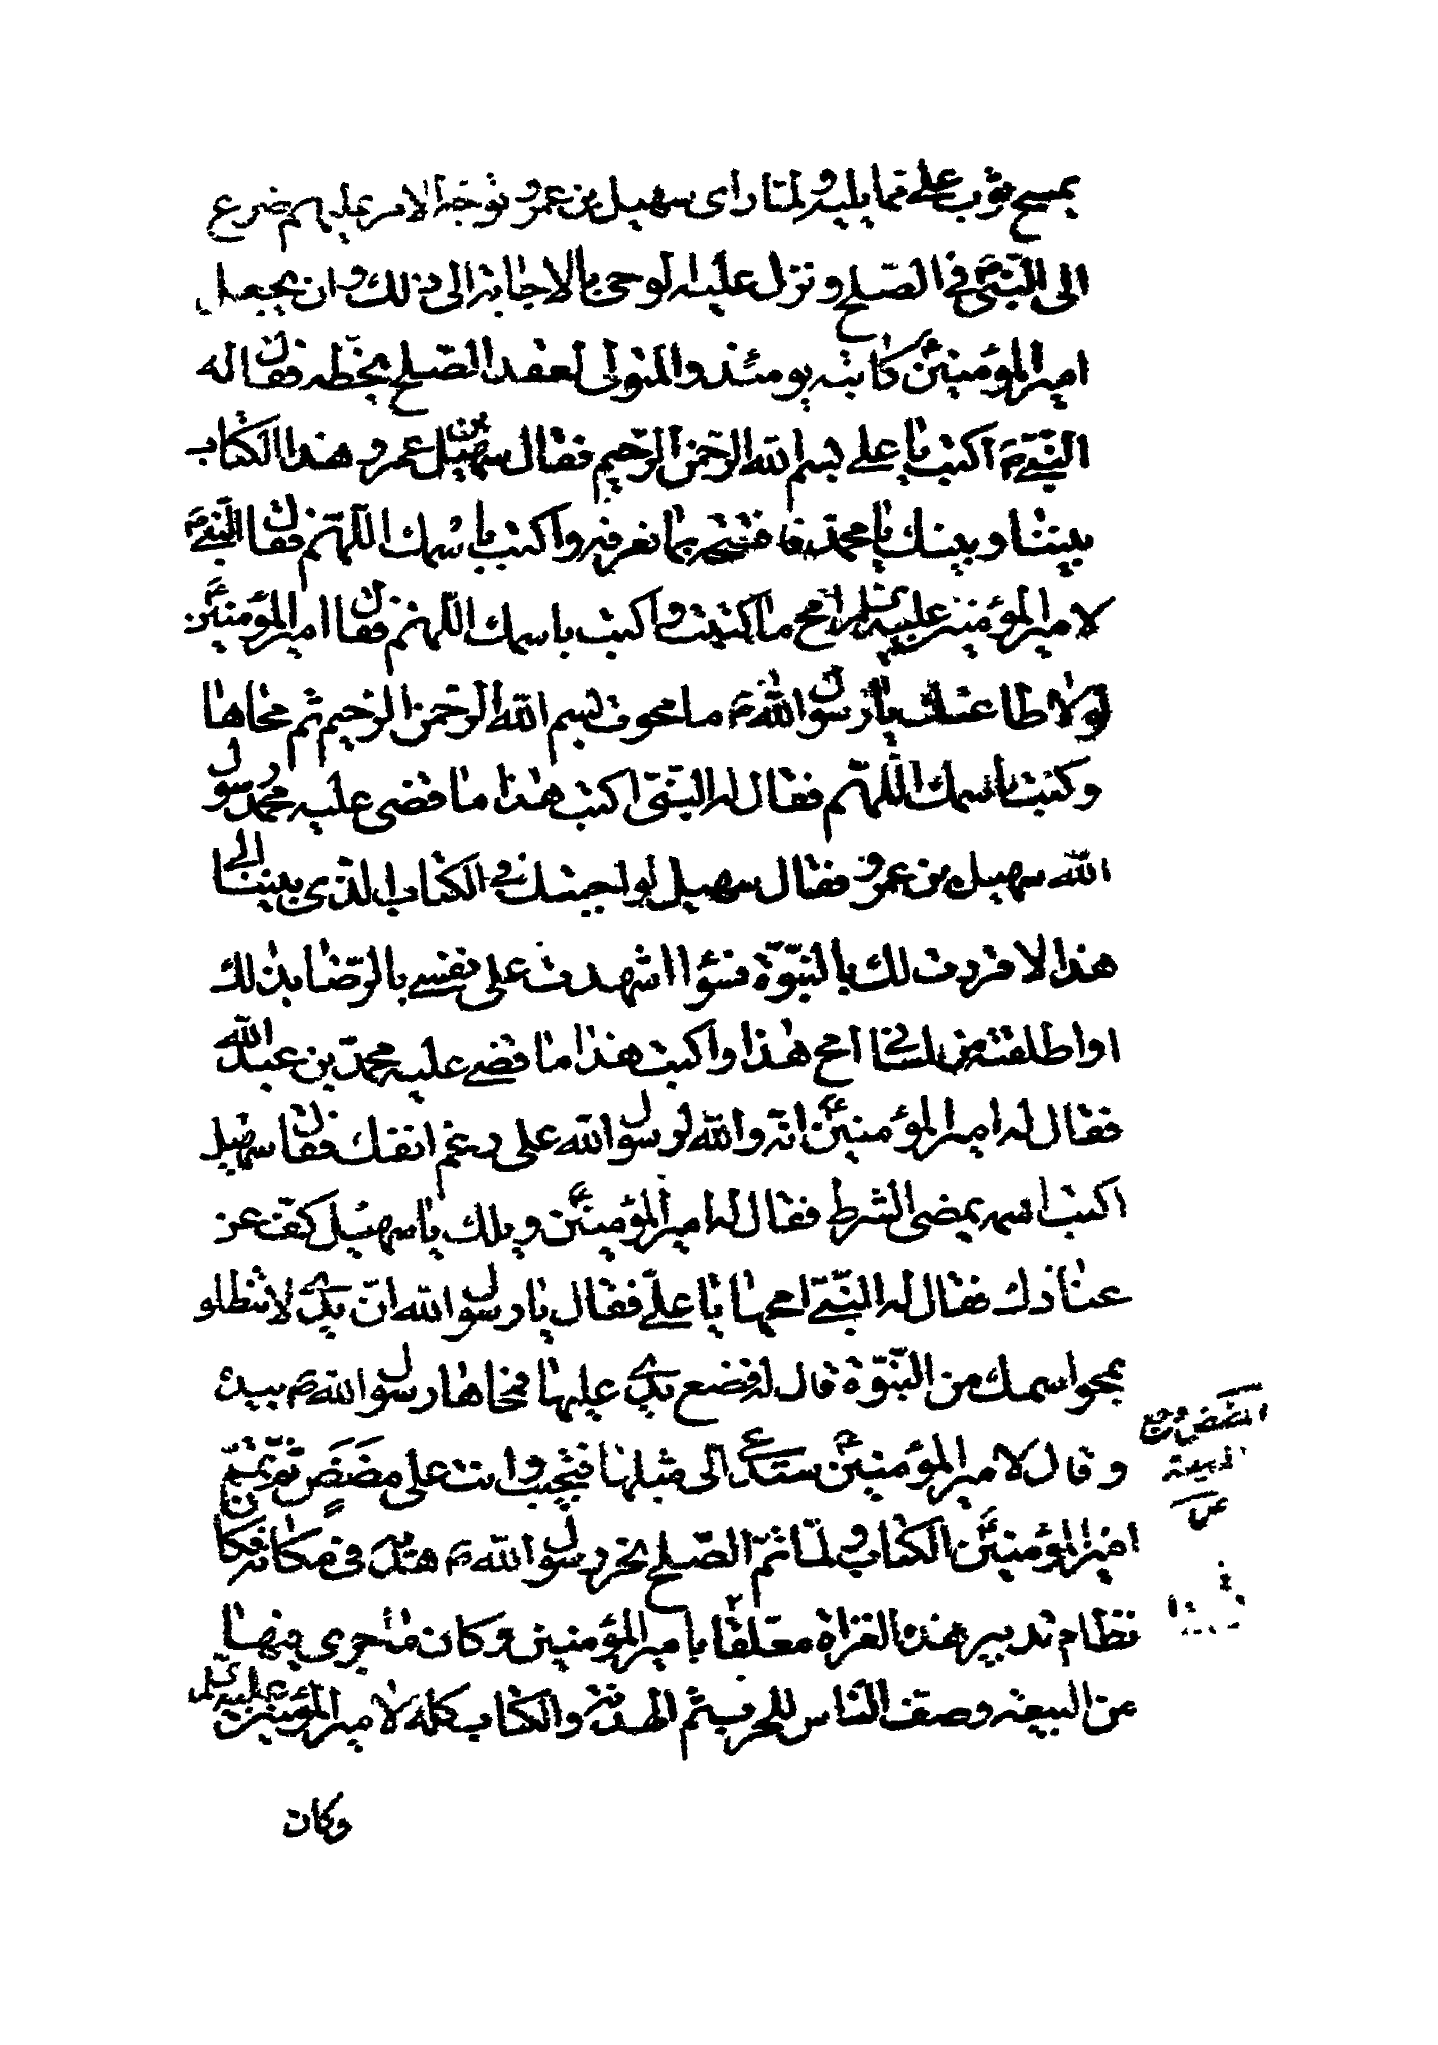 يمسح بثوب على مما يليه ولما راى سهيل بن عمرو توجه الامر عليهم ضرع
الى النبى فى الصلح ونزل عليه الوحى بالاجابة الى ذلك وان يجعل
امير المؤمنين كاتبه يومئذ والمتولى لعقد الصلح بخطه فقال له
النبي اكتب يا على بسم الله الرحمن الرحيم فقال سهيل بن عمرو هذا الكتاب
بيننا وبينك يا محمد فافتتحه بما نعرفه واكتب باسمك اللهم فقال النبي
لامير المؤمنين عليه السلام امح ما كتبت واكتب باسمك اللهم فقال امير المؤمنين
لولا طاعتك يا رسول الله ما محوت بسم الله الرحمن الرحيم ثم محاها
وكتب باسمك اللهم فقال له النبى اكتب هذا ما قضى عليه محمد رسول
الله سهيل بن عمرو فقال سهيل لو اجبتك فى الكتاب الذى بيننا الى
هذا لاقررت لك بالنبوة فسؤا اشهدت على نفسي بالرضا بذلك
او اطلقته من لسانى امح هذا واكتب هذا ما قضى عليه محمد بن عبد الله
فقال له امير المؤمنين انه والله لرسول الله على رغم انفك فقال سهيل
اكتب اسمه يمضى الشرط فقال له امير المؤمنين ويلك يا سهيل كف عن
عنادك فقال له النبي امحها يا على فقال يا رسول الله ان يدى لا تنطلق
بمحو اسمك من النبوة قال له فضع يدى عليها فمحاها رسول الله بيده
وقال لامير المؤمنين ستدعى الى مثلها فتجيب وانت على مضض ثم تمم
امير المؤمنين الكتاب ولما تم الصلح نحر رسول الله هديه فى مكانه فكان
نظام تدبير هذه الغزاة معلقا بامير المؤمنين وكان ما جرى فيها
من البيعة وصف الناس للحرب ثم الهدنة والكتاب كله لامير المؤمنين عليه السلام
وكان
المضض وجع
المصيبة
ص